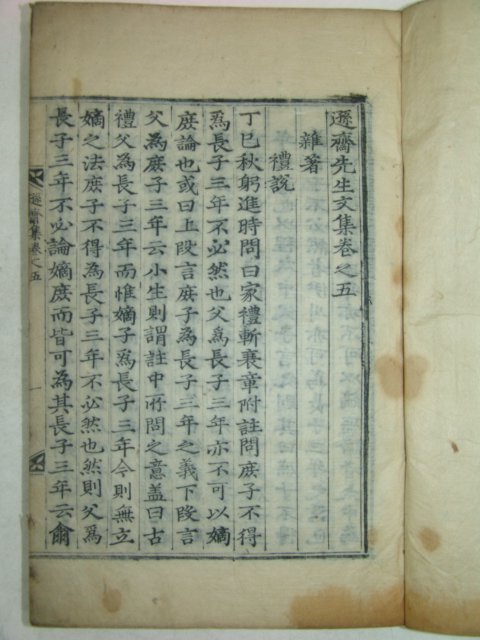 遜齋先生文集卷之五
雜著
禮說
丁巳秋躬進時問曰家禮斬衰章附註問庶子不得
爲長子三年不必然也父爲長子三年亦不可以嫡
庶論也或曰上段言庶子爲長子三年之義下段言
父爲庶子三年云小生則謂註中所問之意盖曰古
禮父爲長子三年而惟嫡子爲長子三年今則無立
嫡之法庶子不得為長子三年不必然也然則父爲
長子三年不必論嫡庶而皆可為其長子三年云爾
遜齋集卷之五
一